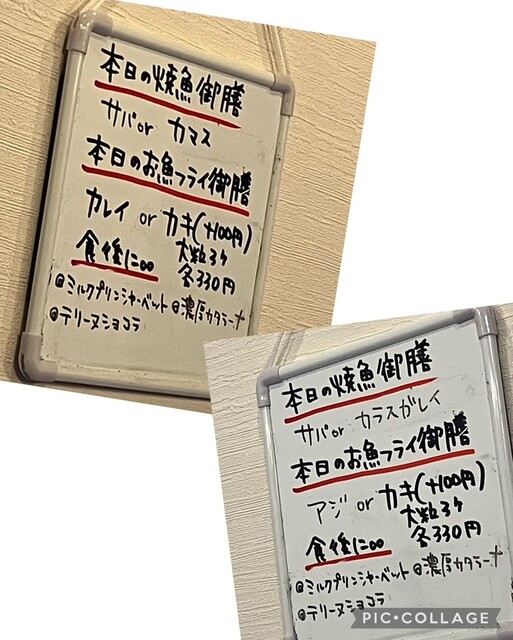 本日の焼魚御膳
サバor カマス
本日のお魚フライ御膳
カレイ or カキ(+100円)
大粒3ヶ
食後に∞ 各330円
@ミルクプリンシャーベット @濃厚カタラーナ
@テリーヌショコラ
本日の焼魚御膳
サバor カラスガレイ
本日のお魚フライ御膳
アジ or カキ(+100円)
大粒3ヶ
食後に∞ 各330円
@ミルクプリンシャーベット @濃厚カタラーナ
@テリーヌショコラ
PIC•COLLAGE